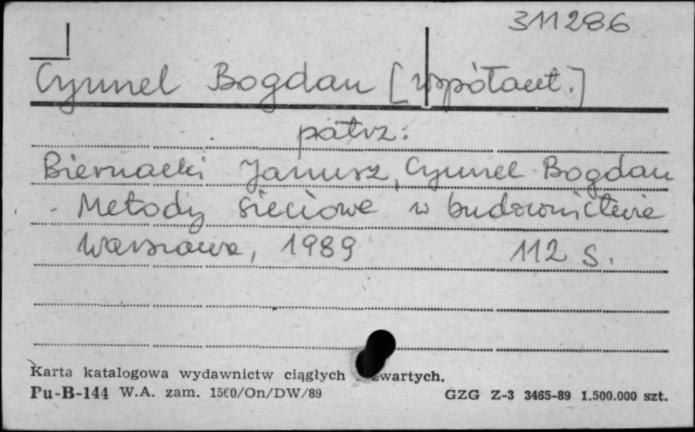 311286
Cymel Bogdan [współaut.]
patrz:
Biernacki Janusz, Cymel Bogdan
Metody sieciowe w budownictwie
Warszawa, 1989 112 s.
Karta katalogowa wydawnictw ciągłych zwartych.
Pu-B-144 W.A. zam. 1560/On/DW/89 GZG Z-3 3465-89 1.500.000 szt.